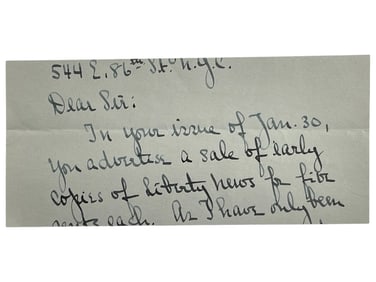 544 E. 86th St. N.Y.C.
Dear Sir:
In your issue of Jan. 30,
you advertise a sale of early
copies of Liberty News for five
cents each. As I have only been